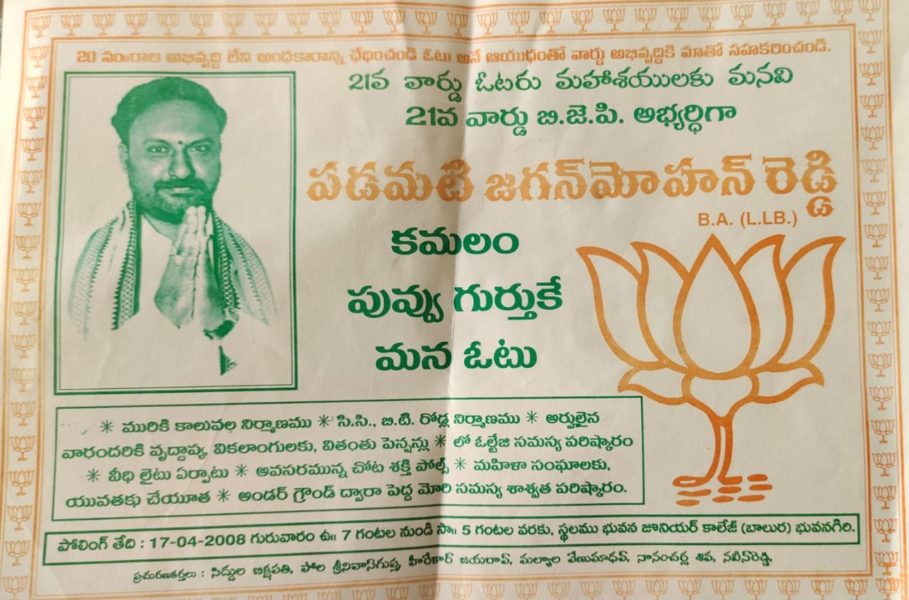 20 సంఃరాల అభివృద్ధి లేని అంధకారాన్ని ఛేధించండి ఓటు అనే ఆయుధంతో వార్డు అభివృద్ధికి మాతో సహకరించండి.
21వ వార్డు ఓటరు మహాశయులకు మనవి
21వ వార్డు బి.జె.పి. అభ్యర్ధిగా
పడమటి జగన్‌మోహన్ రెడ్డి
B.A. (L.LB.)
కమలం
పువ్వు గుర్తుకే
మన ఓటు
✳ మురికి కాలువల నిర్మాణము ✳ సి.సి., బి.టి. రోడ్ల నిర్మాణము ✳ అర్హులైన
వారందరికి వృద్దాప్య, వికలాంగులకు, వితంతు పెన్షన్లు ✳ లో ఓల్టేజి సమస్య పరిష్కారం
✳ వీధి లైటు ఏర్పాటు ✳ అవసరమున్న చోట శక్తి పోల్స్ ✳ మహిళా సంఘాలకు,
యువతకు చేయూత ✳ అండర్ గ్రౌండ్ ద్వారా పెద్ద మోరి సమస్య శాశ్వత పరిష్కారం.
పోలింగ్ తేది : 17-04-2008 గురువారం ఉ॥ 7 గంటల నుండి సా॥ 5 గంటల వరకు, స్థలము భువన జూనియర్ కాలేజ్ (బాలుర) భువనగిరి.
ప్రచురణకర్తలు : సిద్దుల బిక్షపతి, పోల శ్రీనివాస్‌గుప్త, హీరేకార్ జయరావ్, మల్యాల వేణుమాధవ్, నానంచర్ల శివ, నవీన్‌రెడ్డి.